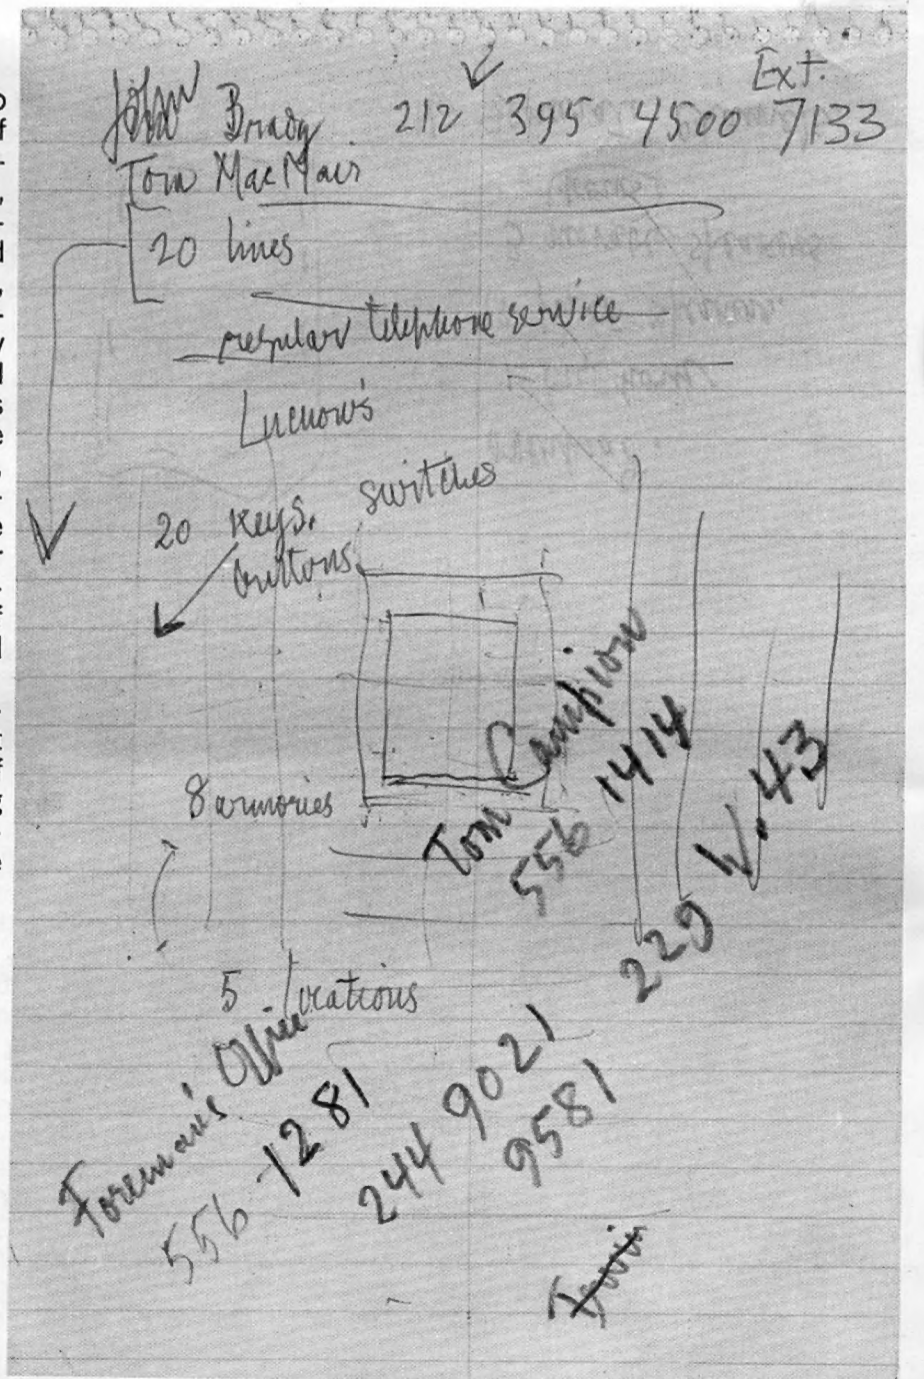 Ext.
John Brady 212 395 4500 7133
Tom MacNair
20 lines
regular telephone service
Luchow's
20 keys. switches
buttons
8 armories
Tom Campion
556 1414
229 W. 43
5 locations
Foreman's Office
556-1281
244 9021
9581